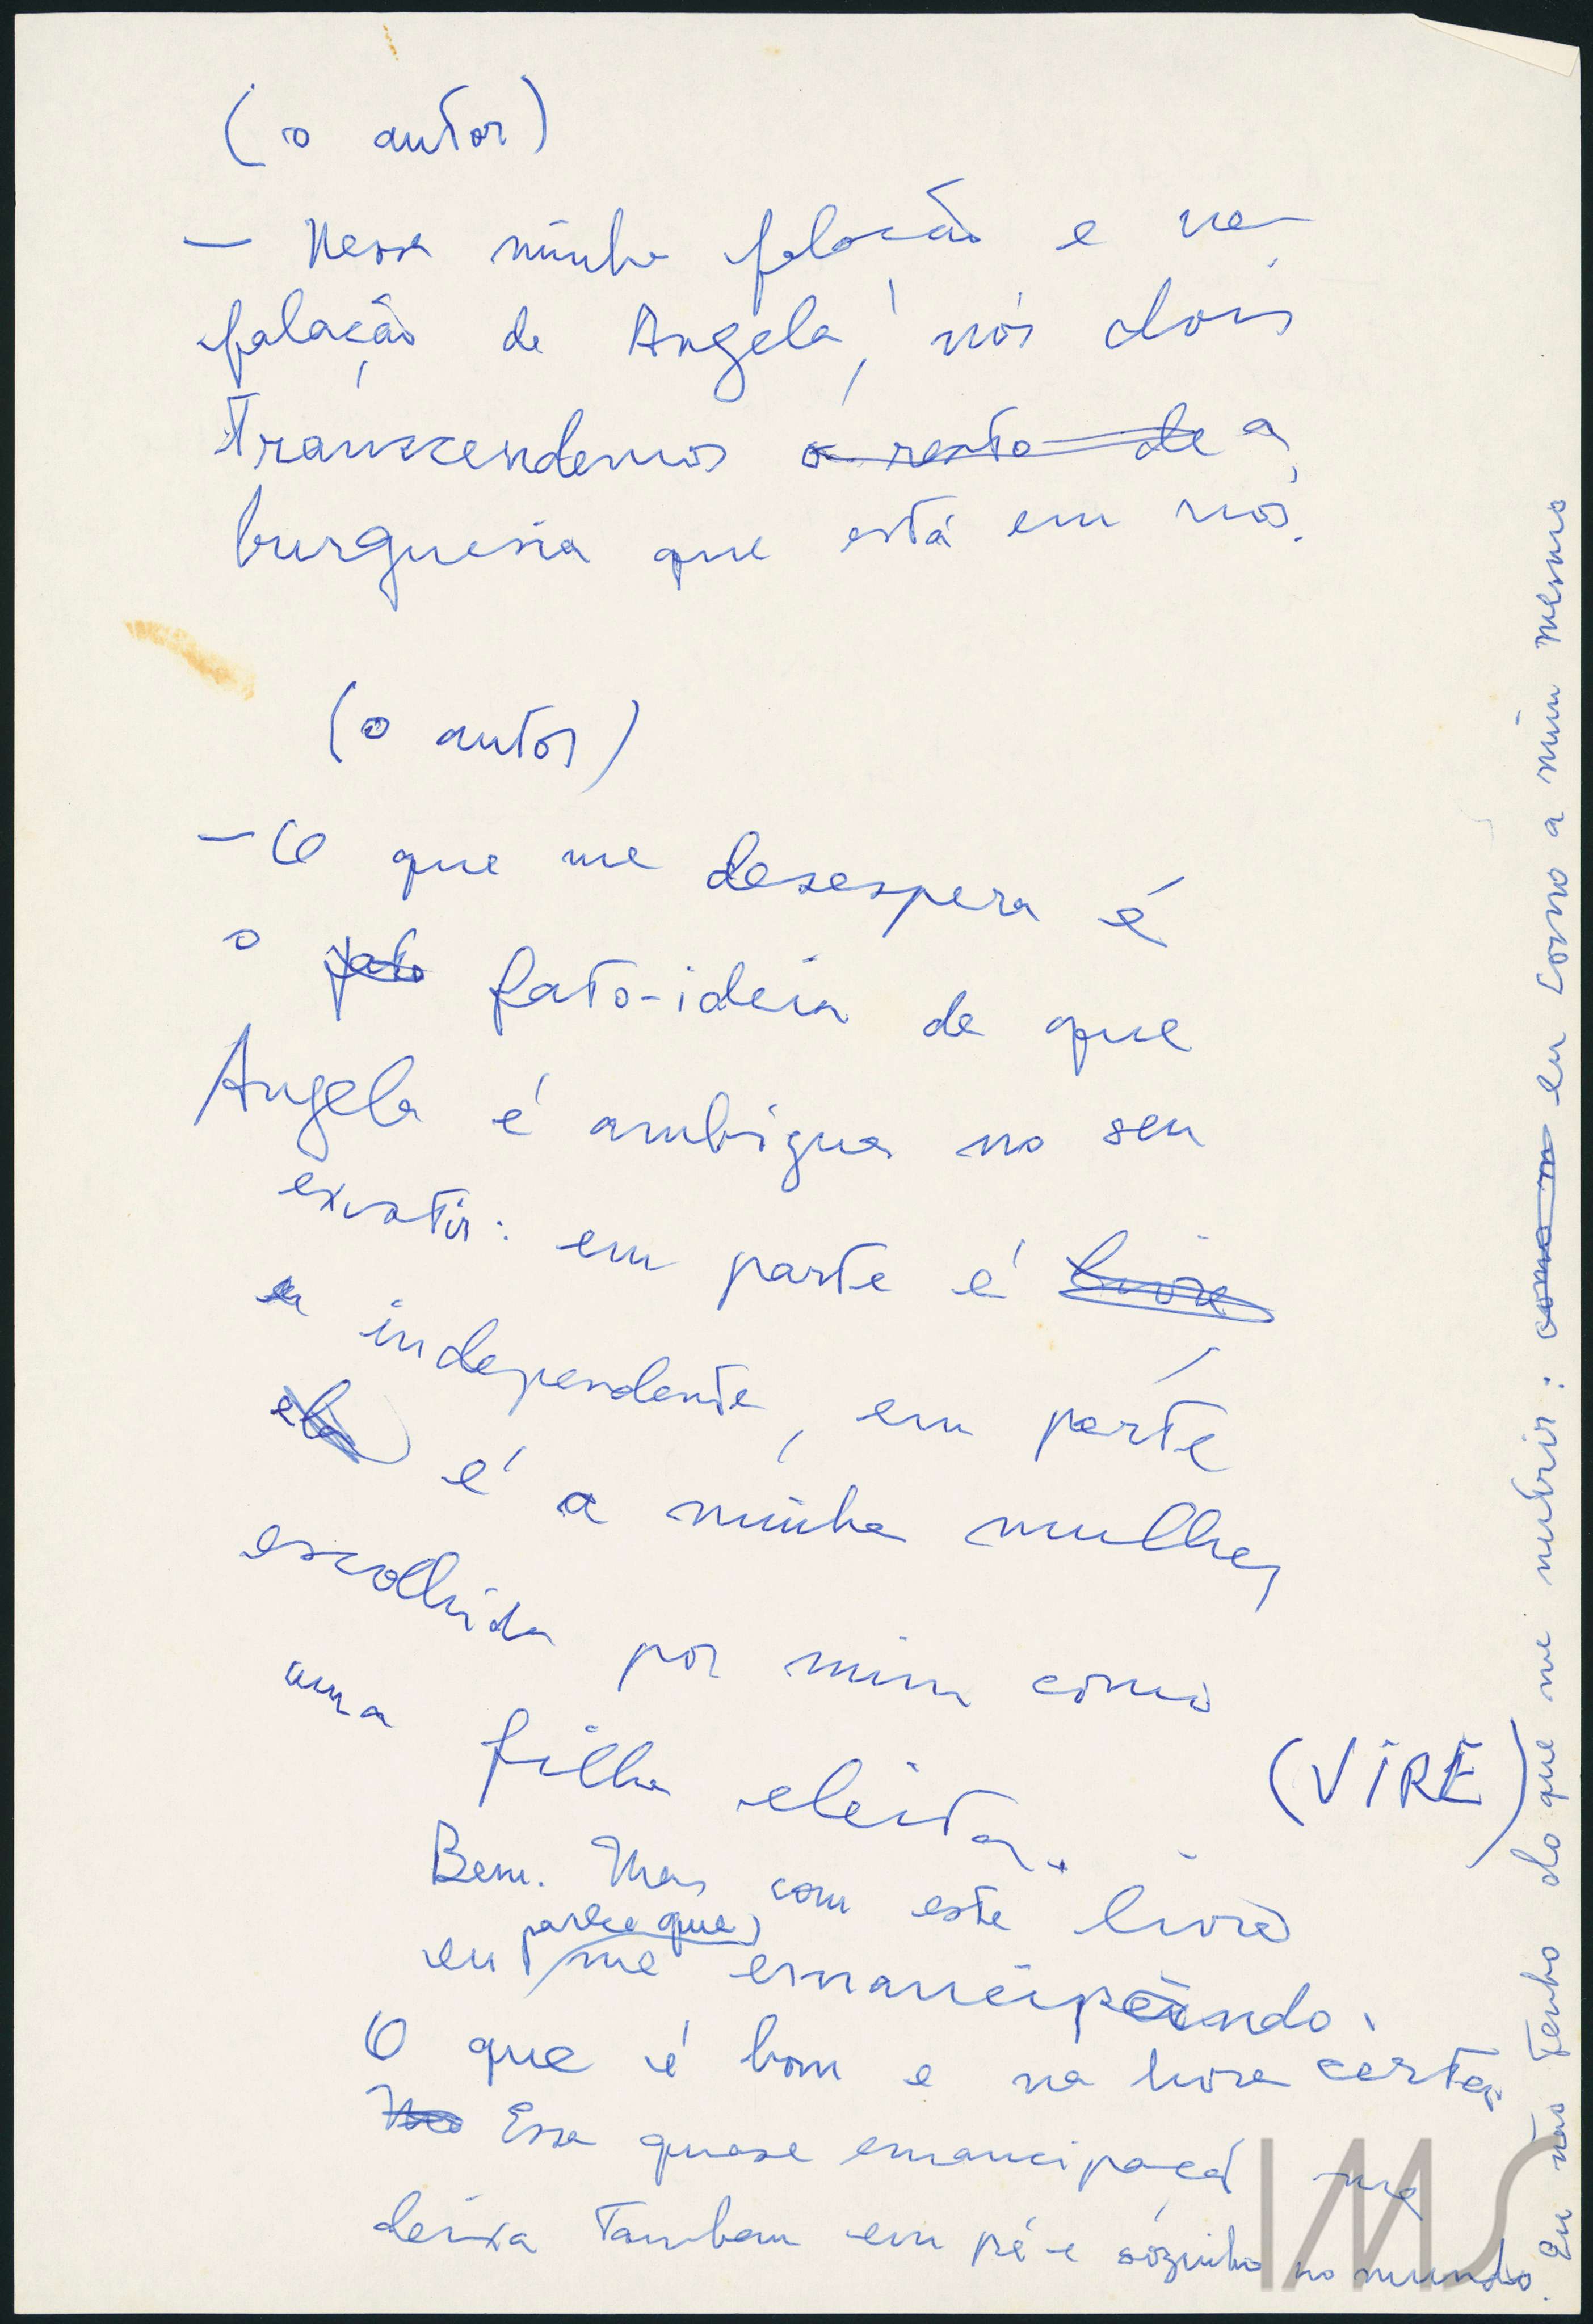 (o autor)
— Nessa minha falação e na
falação de Angela, nós dois
transcendemos o resto de a
burguesia que está em nós.
(o autor)
— O que me desespera é
o fato fato-ideia de que
Angela é ambigua no seu
existir: em parte é livre
e independente, em parte
ela é a minha mulher
escolhida por mim como
uma filha eleita.
(VIRE)
Bem. Mas com este livro
parece que
eu me emancipando.
O que é bom e na hora certa.
Essa quase emancipação me
deixa tambem em pé e sòzinho no mundo.
Eu não tenho do que me nutrir: eu como a mim mesmo
IMS